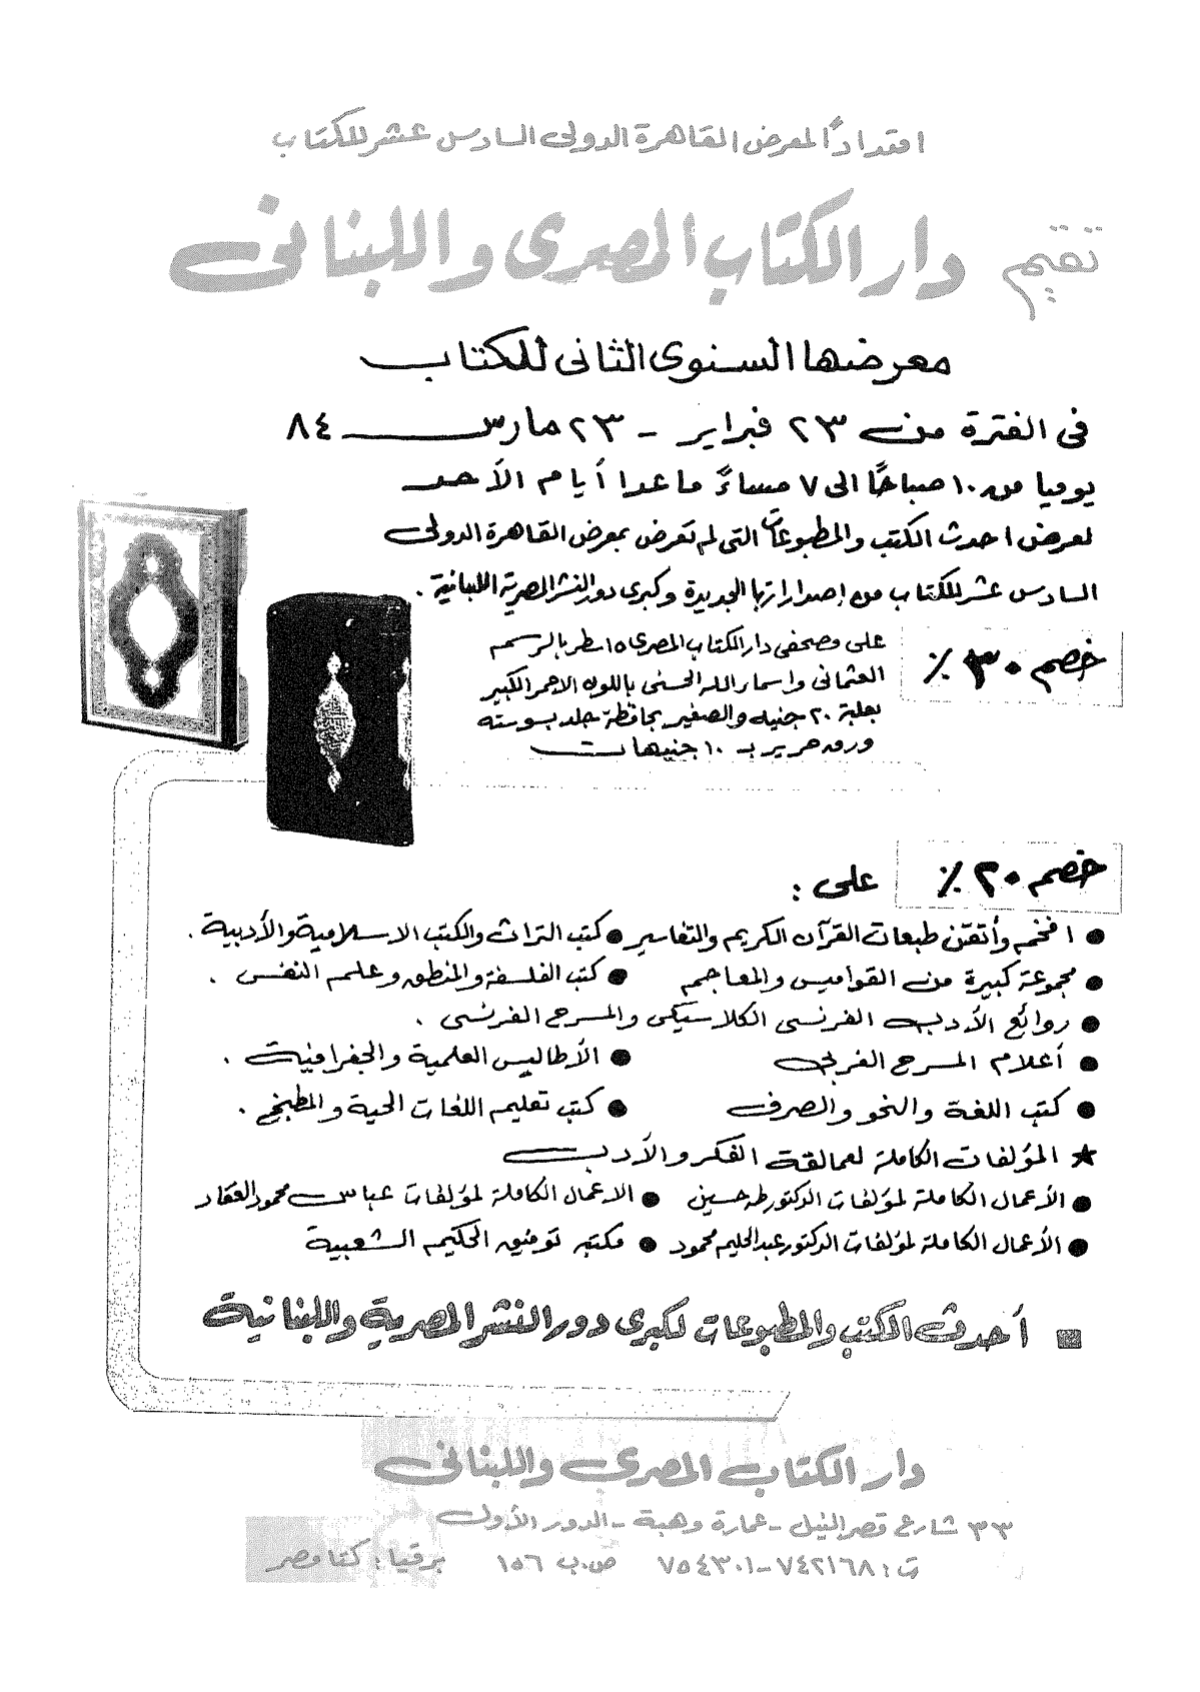 امتدادًا لمعرض القاهرة الدولى السادس عشر للكتاب
تقيم دار الكتاب المصرى واللبنانى
معرضها السنوى الثانى للكتاب
فى الفترة من ٢٣ فبراير - ٢٣ مارس ٨٤
يوميا من ١٠ صباحًا الى ٧ مساءً ماعدا أيام الأحد
لعرض احدث الكتب والمطبوعات التى لم تعرض بمعرض القاهرة الدولى
السادس عشر للكتاب من إصداراتها الجديدة وكبرى دور النشر المصرية اللبنانية .
خصم ٣٠ ٪
على مصحفى دار الكتاب المصرى ١٥ سطر بالرسم
العثمانى واسماء الله الحسنى باللون الاحمر الكبير
بعلبة ٢٠ جنيه والصغير بحافظة جلد بسوسته
ورق حرير بـ ١٠ جنيهات
خصم ٢٠ ٪ على :
● افخم وأتقن طبعات القرآن الكريم والتفاسير ● كتب التراث والكتب الاسلامية والأدبية .
● مجموعة كبيرة من القواميس والمعاجم ● كتب الفلسفة والمنطق وعلم النفس .
● روائع الأدب الفرنسى الكلاسيكى والمسرح الفرنسى .
● أعلام المسرح الغربى ● الأطاليس العلمية والجغرافية .
● كتب اللغة والنحو والصرف ● كتب تعليم اللغات الحية والمطبخ .
★ المؤلفات الكاملة لعمالقة الفكر والأدب
● الأعمال الكاملة لمؤلفات الدكتور طه حسين ● الاعمال الكاملة لمؤلفات عباس محمود العقاد
● الأعمال الكاملة لمؤلفات الدكتور عبد الحليم محمود ● مكتبة توفيق الحكيم الشعبية
■ أحدث الكتب والمطبوعات لكبرى دور النشر المصرية واللبنانية
دار الكتاب المصرى واللبنانى
٣٣ شارع قصر النيل - عمارة وهبة - الدور الأول
ت : ٧٤٢١٦٨ - ٧٥٤٣٠١ ص.ب ١٥٦ برقيا : كتا مصر